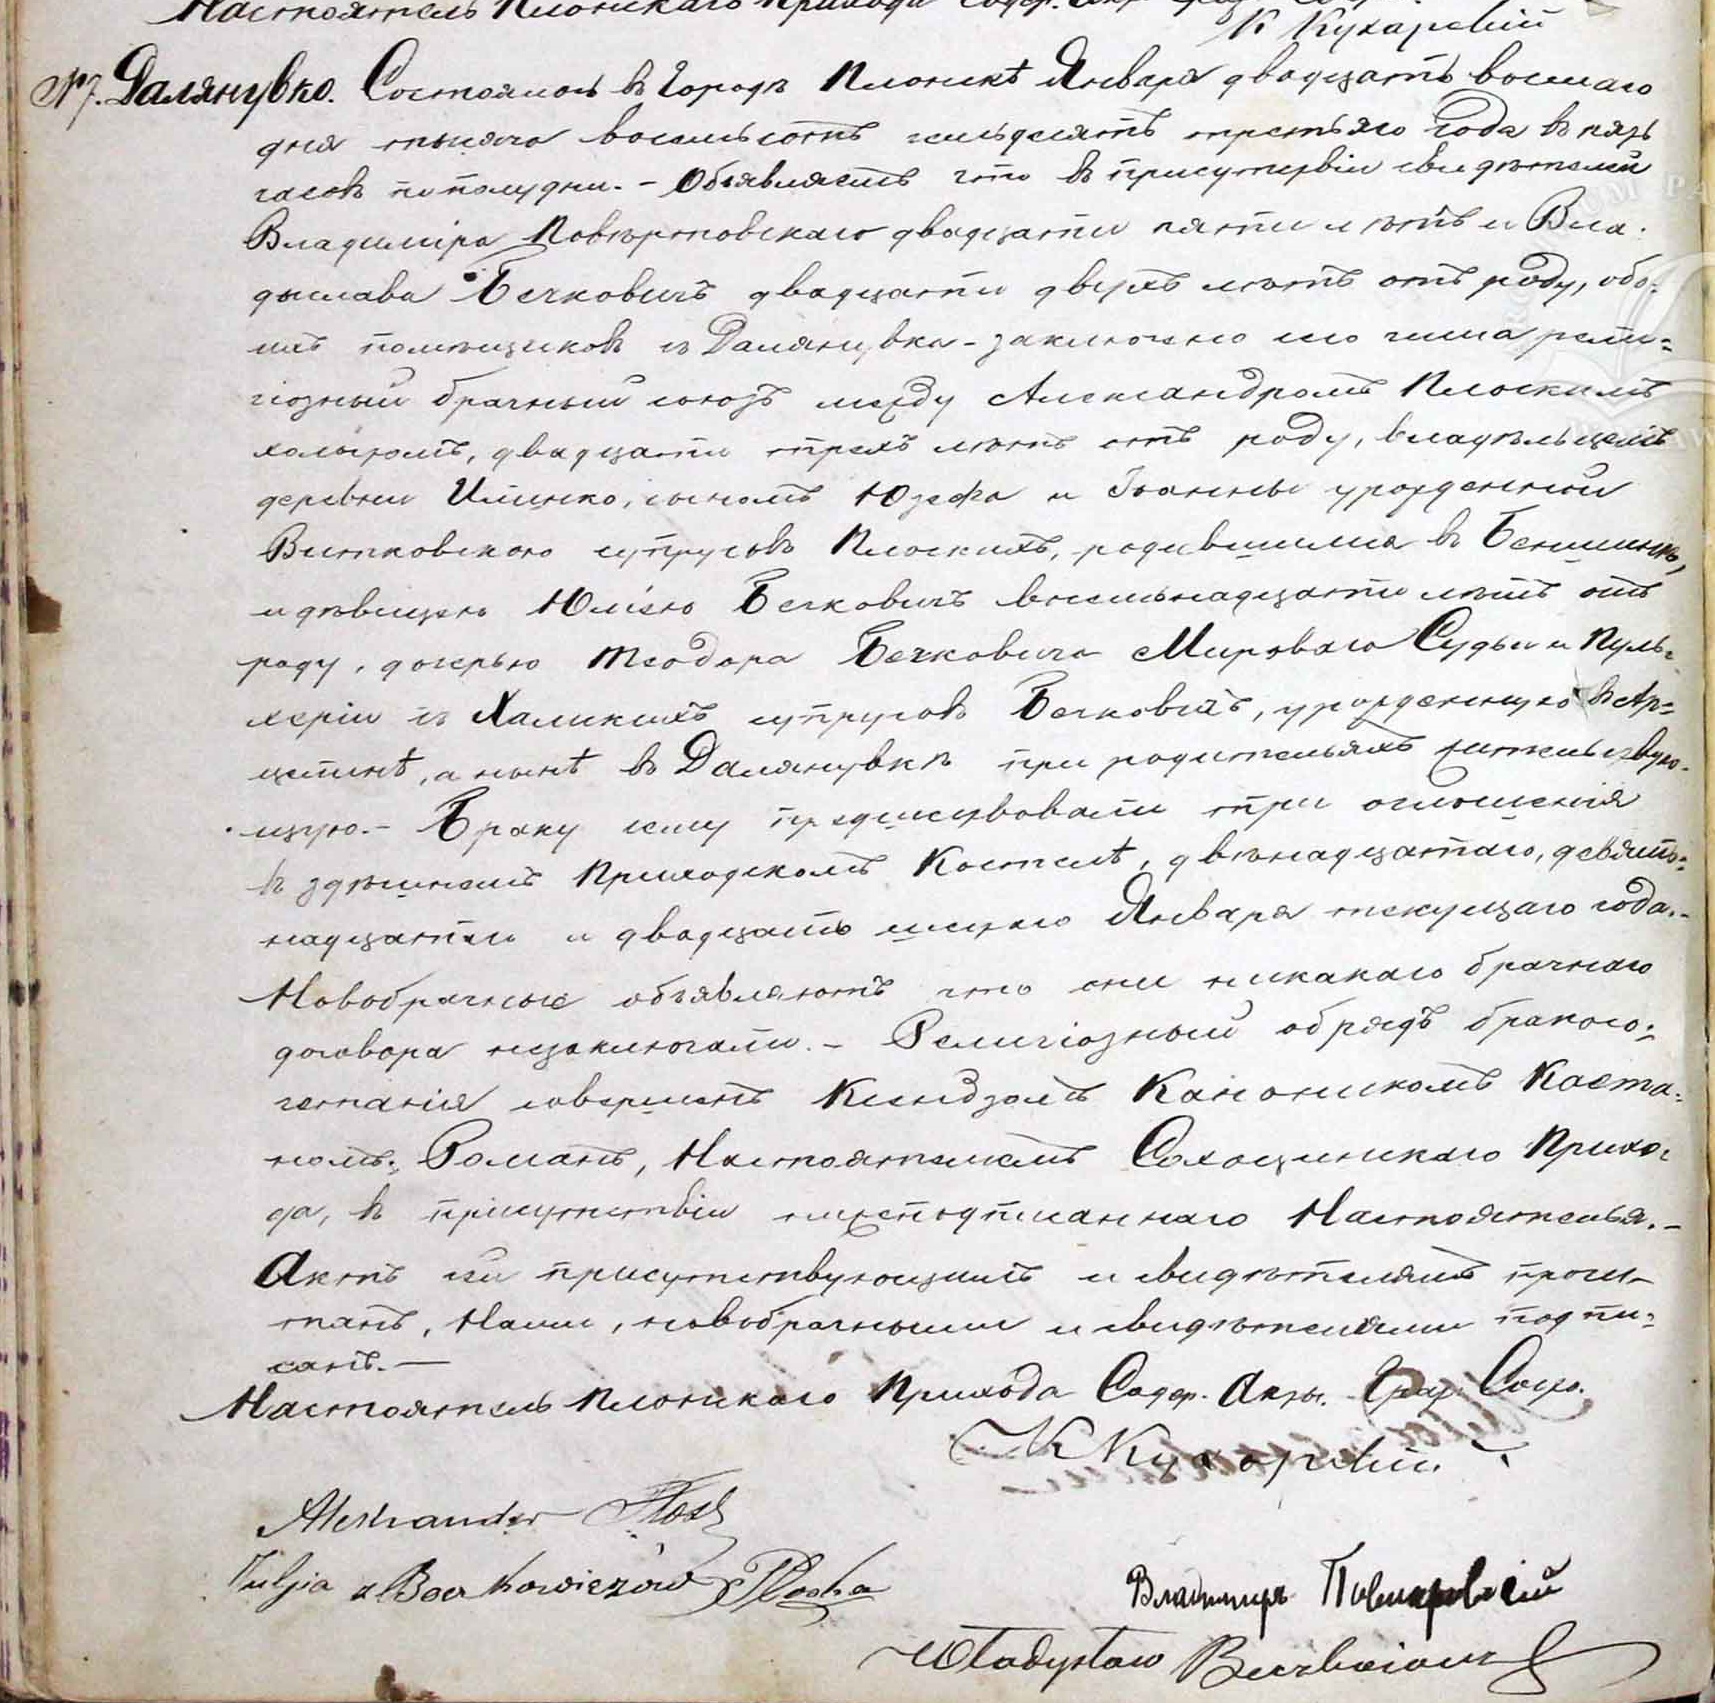 Настоятель Плонскаго Прихода Содер. Акт. Граж. Сост.
К Кухарскій
№ 7. Далянувко. Состоялось въ Городѣ Плонскѣ Января двадцать восьмаго
дня тысяча восемьсотъ семьдесятъ третьяго года въ пять
часовъ по полудни. – Объявляемъ что въ присутствіи свидѣтелей
Владиміра двадцати пяти лѣтъ и Вла-
дыслава Бечковичъ двадцати двухъ лѣтъ отъ роду, обо-
ихъ помѣщиковъ изъ Далянувка – заключено сего числа рели=
гіозный брачный союзъ между Александромъ Плоскимъ
холостомъ, двадцати трехъ лѣтъ отъ роду, владѣльцемъ
деревни Илинко, сыномъ Юзефа и Іоанны урожденной
Витковского супруговъ Плоскихъ, родившимся въ
и дѣвицею Юліею Бечковичъ восемьнадцати лѣтъ отъ
роду, дочерью Теодора Бечковича Мироваго Судьи и Пуль-
херіи изъ Халикихъ супруговъ Бечковичъ, урожденную въ Ар=
цешинѣ, а нынѣ въ Далянувкѣ при родительяхъ жительствую-
щую. – Браку сему предшествовали три оглашенія
въ здѣшнемъ Приходскомъ Костелѣ, двѣнадцатаго, девять=
надцатаго и двадцать шестаго Января текущаго года. –
Новобрачные объявляютъ что они никакаго брачнаго
договора незаключали. – Религіозный обрядъ бракосо=
четанія совершенъ Ксендзомъ Каноникомъ Каета=
номъ Романъ, Настоятелемъ Сохоцинскаго Прихо=
да, въ присутствіи нижеподписаннаго Настоятеля. –
Актъ сей присутствующимъ и свидѣтелямъ прочи-
танъ, Нами, новобрачными и свидѣтелями подпи=
санъ. –
Настоятель Плонскаго Прихода Содер. Акты. Граж. Сост.
К Кухарскій
Alexhander Płoski
Julja z Beczkowiczów Płoska
Владимиръ
Władysław Beczkowicz